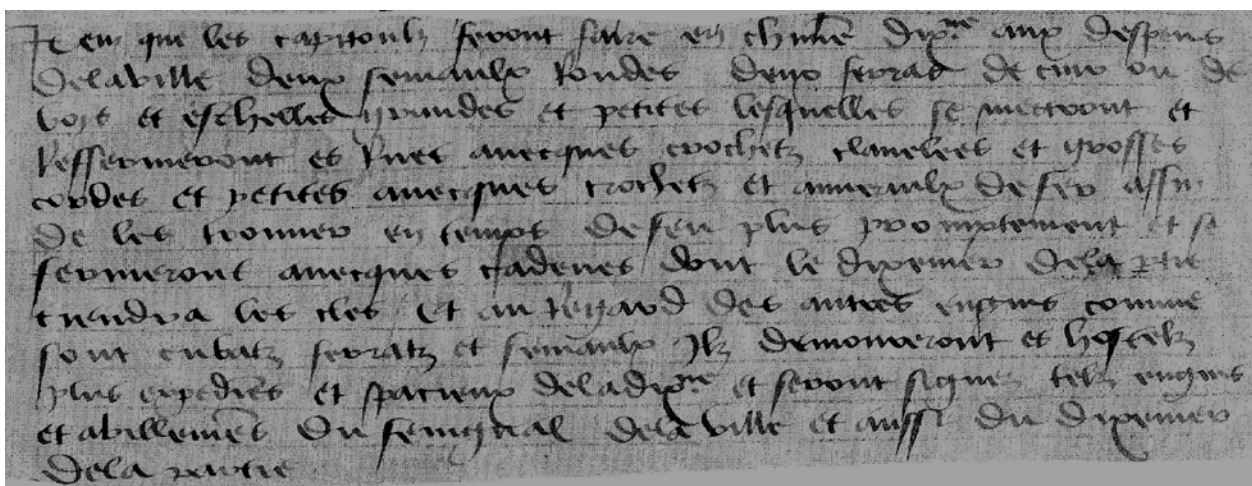 Item que les capitoulz feront faire en chūne dixne aux despens
dela ville deux semaulx Rondes deux ferratz de cuir ou de
boys et eschelles grandes et petites lesquelles se mectront et
Resserreront es Rues avecques crochetz clavelees et grosses
cordes et petites avecques crochetz et anneaulx de fer affin
de les trouver en temps de feu plus promptement et se
fermeront avecques cadenes dont le dixenier dela ptie
tiendra les cles Et au Regard des autres engins comme
sont cubatz ferratz et semaulx Ilz demoureront es hostelz
plus expediēs et spacieux dela dixne et seront signez telz engins
et abillemēs Du seingnal dela ville et aussi du dixenier
dela partie